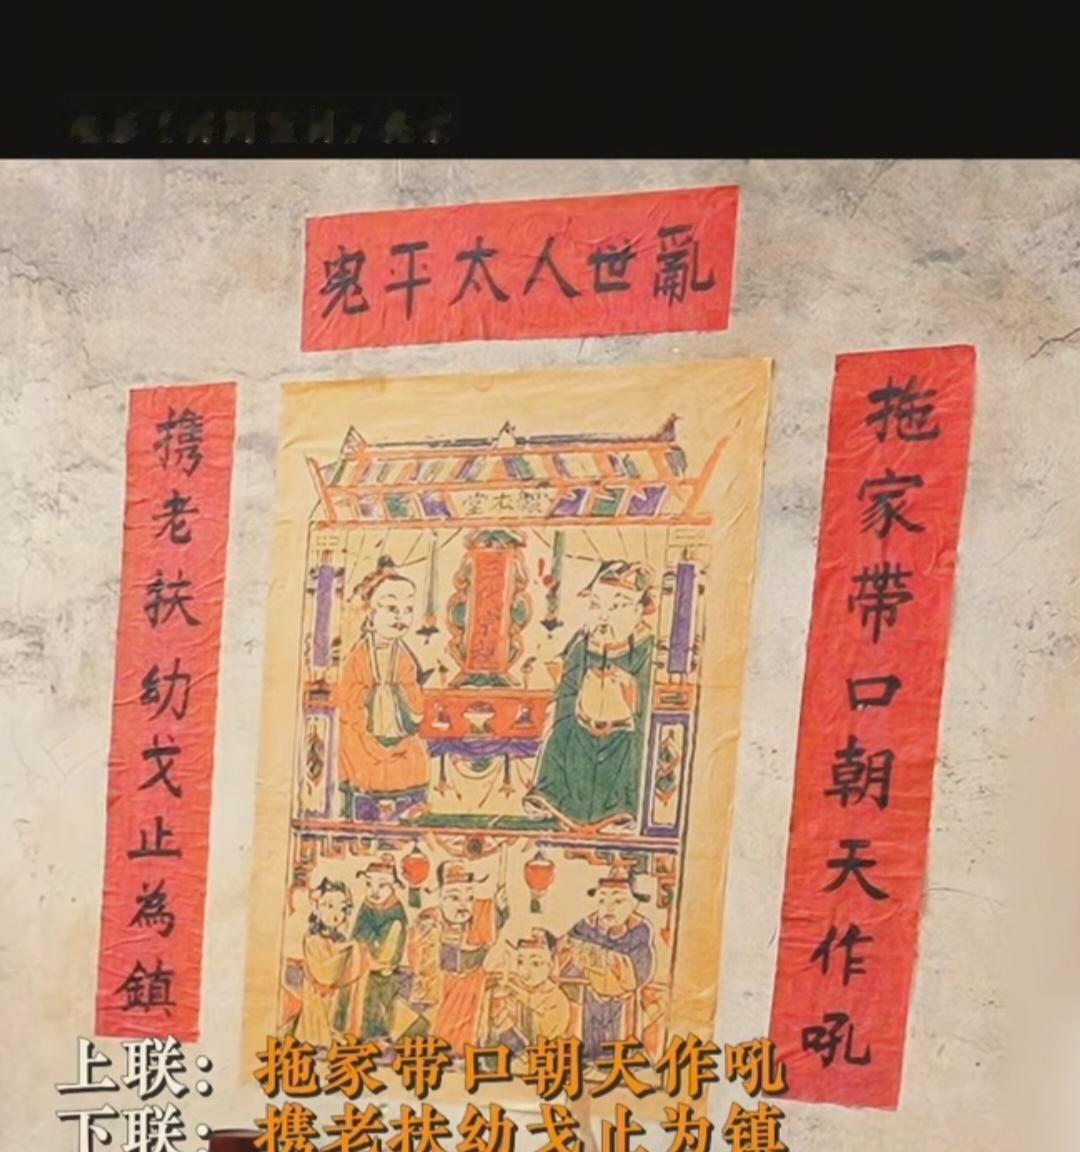 亂世人太平鬼
拖家帶口朝天作吼
携老扶幼戈止為鎮
上联：拖家带口朝天作吼
下联：携老扶幼戈止为镇